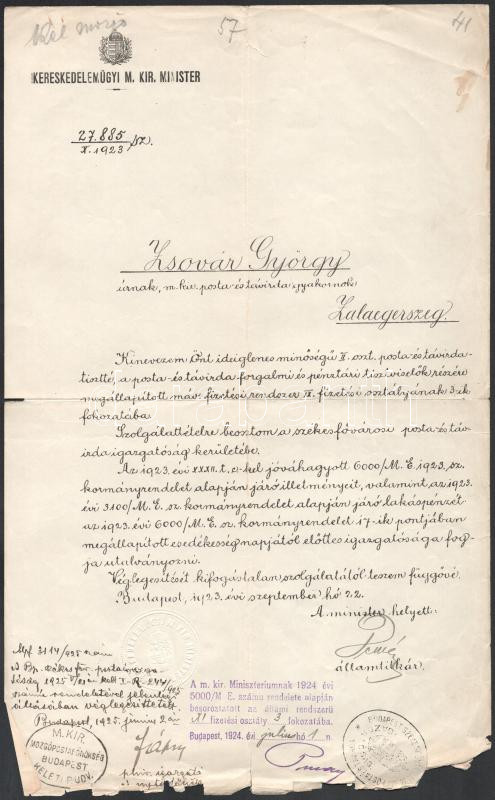 57
41
KERESKEDELEMÜGYI M. KIR. MINISTER
27.885/sz.
X. 1923
Zsovár György
úrnak, m. kir. posta és távirda gyakornok
Zalaegerszeg.
Kinevezem Önt ideiglenes minőségű II. oszt. posta és távirda-
tisztté, a posta- és távirda forgalmi és pénztári tisztviselők részére
megállapított máv. fizetési rendszer IX. fizetési osztályának 3-ik
fokozatába.
Szolgálattételre beosztom a székesfővárosi posta és táv
irdaigazgatóság kerületébe.
Az 1923. évi XXXII. t. cz-kel jóváhagyott 6000/M.E. 1923. sz.
kormányrendelet alapján járó illetményeit, valamint, az 1923.
évi 3100/M.E. sz. kormányrendelet alapján járó lakáspénzét
az 1923. évi 6000/M.E. sz. kormányrendelet 17-ik pontjában
megállapított esedékesség napjától előttes igazgatósága fog-
ja utalványozni.
Véglegesítését kifogástalan szolgálatától teszem függővé.
Budapest, 1923. évi szeptember hó 22.
A minister helyett:
államtitkár.
3114/925
A Bp.
1925
Budapest, 1925. június 2 án
A m. kir. Miniszteriumnak 1924 évi
5000/M E. számu rendelete alapján
besoroztatott az állami rendszerü
XI fizetési osztály 3 fokozatába.
Budapest, 1924. évi julius hó 1 n.
M. KIR.
MOZGÓPOSTAFŐNÖKSÉG
BUDAPEST
KELETI P.UDV.
p. ü. igazgató